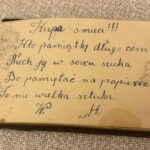 Kupa śmieci!!!
Kto pamiątkę długo ceni
Niech ją w sercu szuka
Bo pamiętać na papierze
To nie wielka sztuka
W. H.